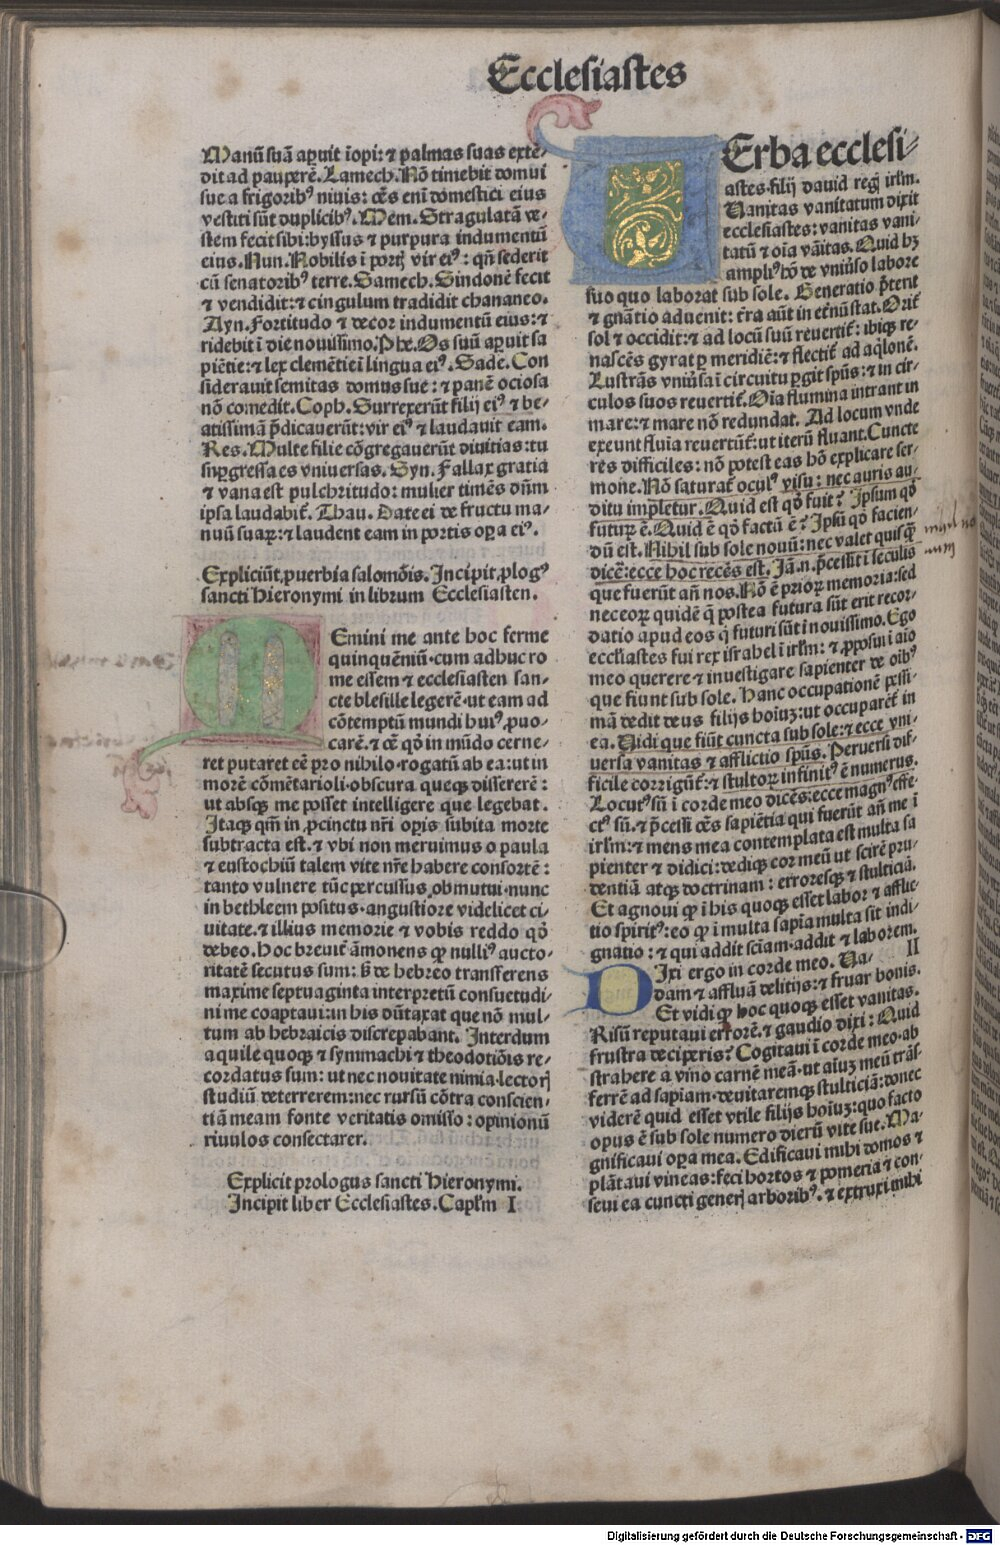 Ecclesiastes
Manū suā aꝑuit īopi: ⁊ palmas suas extē-
dit ad pauꝑerē. Lamech. Nō timebit domui
sue a frigoribꝰ niuis: oēs eni domestici eius
vestiti sūt duplicibꝰ. Mem. Stragulatā ve-
stem fecit sibi: byssus ⁊ purpura indumentū
eius. Nun. Nobilis ī portꝭ vir eiꝰ: qn̄ sederit
cū senatoribꝰ terre. Samech. Sindonē fecit
⁊ vendidit: ⁊ cingulum tradidit chananeo.
Ayn. Fortitudo ⁊ decor indumentū eius: ⁊
ridebit ī die nouissimo. Phe. Os suū aꝑuit sa
piētie: ⁊ lex clemētie ī lingua eiꝰ. Sade. Con
siderauit semitas domus sue: ⁊ panē ociosa
nō comedit. Coph. Surrexerūt filij eiꝰ ⁊ be-
atissimā p̄dicauerūt: vir eiꝰ ⁊ laudauit eam.
Res. Multe filie cōgregauerūt diuitias: tu
suꝑgressa es vniuersas. Syn. Fallax gratia
⁊ vana est pulchritudo: mulier timēs dn̄m
ipsa laudabit̄. Thau. Date ei de fructu ma-
nuū suaꝝ: ⁊ laudent eam in portis oꝑa eiꝰ.
Expliciūt ꝓuerbia salomōis. Incipit ꝓlogꝰ
sancti Hieronymi in librum Ecclesiasten.
Memini me ante hoc ferme
quinquēniū cum adhuc ro
me essem ⁊ ecclesiasten san-
cte blesille legerē ut eam ad
cōtemptū mundi huiꝰ ꝓuo-
carē. ⁊ oē qd̄ in mūdo cerne-
ret putaret eē pro nihilo rogatū ab ea: ut in
morē cōmētarioli obscura queqꝫ dissererē:
ut absqꝫ me posset intelligere que legebat.
Itaqꝫ qm̄ in ꝓcinctu nr̄i opis subita morte
subtracta est. ⁊ vbi non meruimus o paula
⁊ eustochiū talem vite nr̄e habere consortē:
tanto vulnere tūc percussus obmutui nunc
in bethleem positus angustiore videlicet ci-
uitate. ⁊ illius memorie ⁊ vobis reddo qd̄
debeo. Hoc breuit̄ āmonens ꝙ nulliꝰ aucto-
ritatē secutus sum: sꝫ de hebreo transferens
maxime septuaginta interpretū consuetudi-
ni me coaptaui: in his dūtaxat que nō mul-
tum ab hebraicis discrepabant. Interdum
aquile quoqꝫ ⁊ symmachi ⁊ theodotiōis re-
cordatus sum: ut nec nouitate nimia lectorꝭ
studiū deterrerem: nec rursū cōtra conscien-
tiā meam fonte veritatis omisso: opinionū
riuulos consectarer.
Explicit prologus sancti Hieronymi.
Incipit liber Ecclesiastes. Caplm̄ I
Verba ecclesi-
astes filij dauid regꝭ irl̄m.
Vanitas vanitatum dixit
ecclesiastes: vanitas vani-
tatū ⁊ oīa vāitas. Quid hꝫ
ampliꝰ hō de vniūso labore
suo quo laborat sub sole. Generatio p̄terit
⁊ gnātio aduenit: t̄ra aūt in et̄nū stat. Orit̄
sol ⁊ occidit: ⁊ ad locū suū reuertit̄: ibiqꝫ re-
nascēs gyrat ꝑ meridiē: ⁊ flectit̄ ad aqlonē.
Lustrās vniūsa ī circuitu ꝑgit spūs: ⁊ in cir-
culos suos reuertit̄. Oīa flumina intrant in
mare: ⁊ mare nō redundat. Ad locum vnde
exeunt fluia reuertūt̄: ut iterū fluant. Cuncte
res difficiles: nō potest eas hō explicare ser-
mone. Nō saturat̄ oculꝰ visu: nec auris au-
ditu impletur. Quid est qd̄ fuit? Ipsum qd̄
futuꝝ ē. Quid ē qd̄ factū ē? Ipsū qd̄ facien-
dū est. Nihil sub sole nouū: nec valet quisqꝫ
dicē: ecce hoc recēs est. Iā .n. p̄cessit ī seculis
que fuerūt añ nos. Nō ē prioꝝ memoria: sed
nec eoꝝ quidē q̄ postea futura sūt erit recor-
datio apud eos q̇ futuri sūt ī nouissimo. Ego
eccl̄iastes fui rex israhel ī irl̄m: ⁊ ꝓposui ī aīo
meo querere ⁊ inuestigare sapienter de oībꝰ
que fiunt sub sole. Hanc occupationē pessi-
mā dedit deus filijs hoīuꝫ: ut occuparēt̄ in
ea. Vidi que fiūt cuncta sub sole: ⁊ ecce vni-
uersa vanitas ⁊ afflictio spūs. Peruersi dif-
ficile corrigūt̄: ⁊ stultoꝝ infinitꝰ ē numerus.
Locutꝰ sū ī corde meo dicēs: ecce magnꝰ effe-
ctꝰ sū. ⁊ p̄cessi oēs sapiētia qui fuerūt añ me ī
irl̄m: ⁊ mens mea contemplata est multa sa
pienter ⁊ didici: dediqꝫ cor meū ut scirē pru-
dentiā atqꝫ doctrinam: erroresqꝫ ⁊ stulticiā.
Et agnoui ꝙ ī his quoqꝫ esset labor ⁊ afflic-
tio spiritꝰ: eo ꝙ ī multa sapīa multa sit indi-
gnatio: ⁊ qui addit sciam addit ⁊ laborem.
Dixi ergo in corde meo. Va- II
dam ⁊ affluā delitijs: ⁊ fruar bonis.
Et vidi ꝙ hoc quoqꝫ esset vanitas.
Risū reputaui errorē. ⁊ gaudio dixi: Quid
frustra deciperis? Cogitaui ī corde meo ab
strahere a vino carnē meā ut aīuꝫ meū trās-
ferrē ad sapiam deuitaremqꝫ stulticiā: donec
viderē quid esset vtile filijs hoīuꝫ: quo facto
opus ē sub sole numero dierū vite sue. Ma-
gnificaui oꝑa mea. Edificaui mihi domos ⁊
plātaui vineas: feci hortos ⁊ pomeria ⁊ con-
seui ea cuncti generꝭ arboribꝰ. ⁊ extruxi mihi
Digitalisierung gefördert durch die Deutsche Forschungsgemeinschaft - DFG